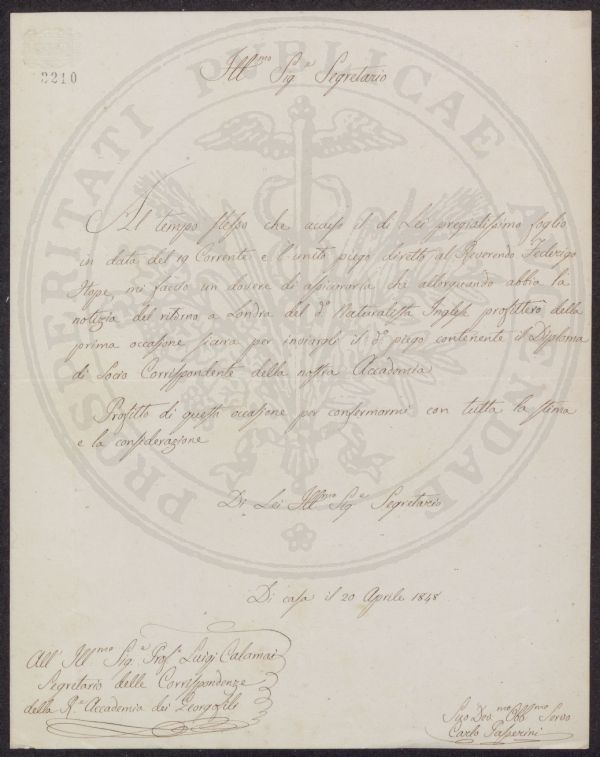 2210
Ill.mo Sig.e Segretario
Al tempo stesso che accuso il di Lei pregiatissimo foglio
in data del 19 Corrente e l'unito piego diretto al Reverendo Federigo
Hope, mi faccio un dovere di assicurarla che allorquando abbia la
notizia del ritorno a Londra del d.o Naturalista Inglese profitterò della
prima occasione sicura per inviargli il d.o piego contenente il Diploma
di Socio Corrispondente della nostra Accademia
Profitto di questa occasione per confermarmi con tutta la stima
e la considerazione
Di Lei Ill.mo Sig.e Segretario
Di casa il 20 Aprile 1848
All' Ill.mo Sig.e Prof.e Luigi Calamai
Segretario delle Corrispondenze
della R.e Accademia dei Georgofili
Suo Dev.mo Obb.mo Servo
Carlo Passerini
PROSPERITATI PUBLICAE AUGENDAE